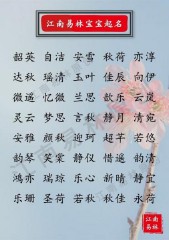 江南易林宝宝起名
韶英 自洁 安雪 秋荷 亦淳
达秋 瑶清 玉叶 佳辰 向伊
微遥 忆薇 兰思 歆乐 云岚
灵云 梦思 言秋 静月 清宛
安雅 颜秋 迎珂 超平 若悠
韵琴 笑棠 静仪 惜遥 韵清
鸿亦 瑞琼 乐心 新晴 静宜
乐珊 圣荷 若秋 秋佳 永荷
江南
易林